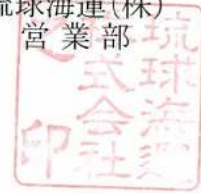 琉球海運(株)
営業部
琉球海運
株式会社
之印